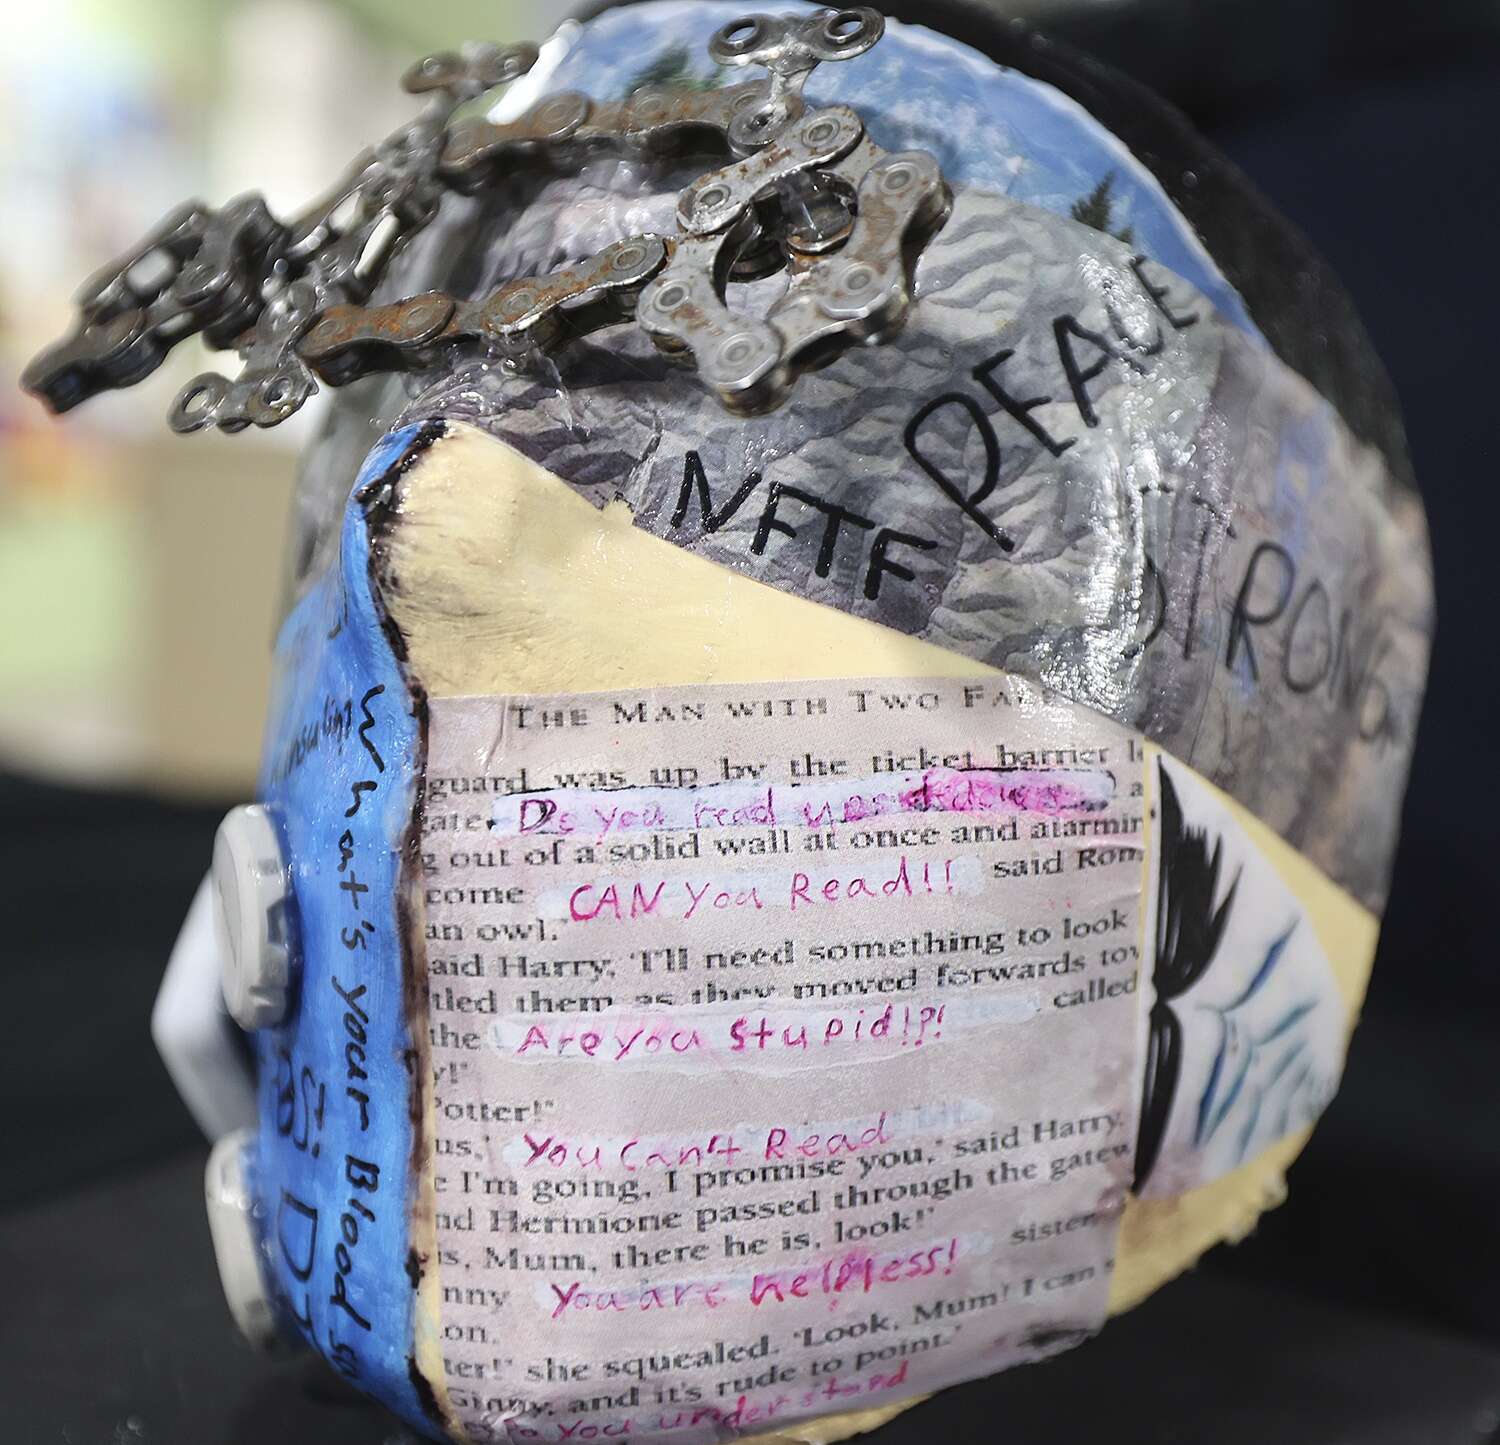 PEACE
NFTF
STRONG
THE MAN WITH TWO
guard was up by the ticket barrier
Do you read upsidedown
g out of a solid wall at once and alarmin
come CAN You Read!! said Ron
an owl.'
aid Harry, 'I'll need something to look
tled them as they moved forwards tow
the Are you stupid!?! called
y!'
Potter!'
us,' You can't Read
e I'm going, I promise you,' said Harry.
nd Hermione passed through the gatew
is, Mum, there he is, look!'
nny You are helpless! sister
on.
ter!' she squealed. 'Look, Mum! I can
Ginny, and it's rude to point.'
Do You understand
What's your Blood